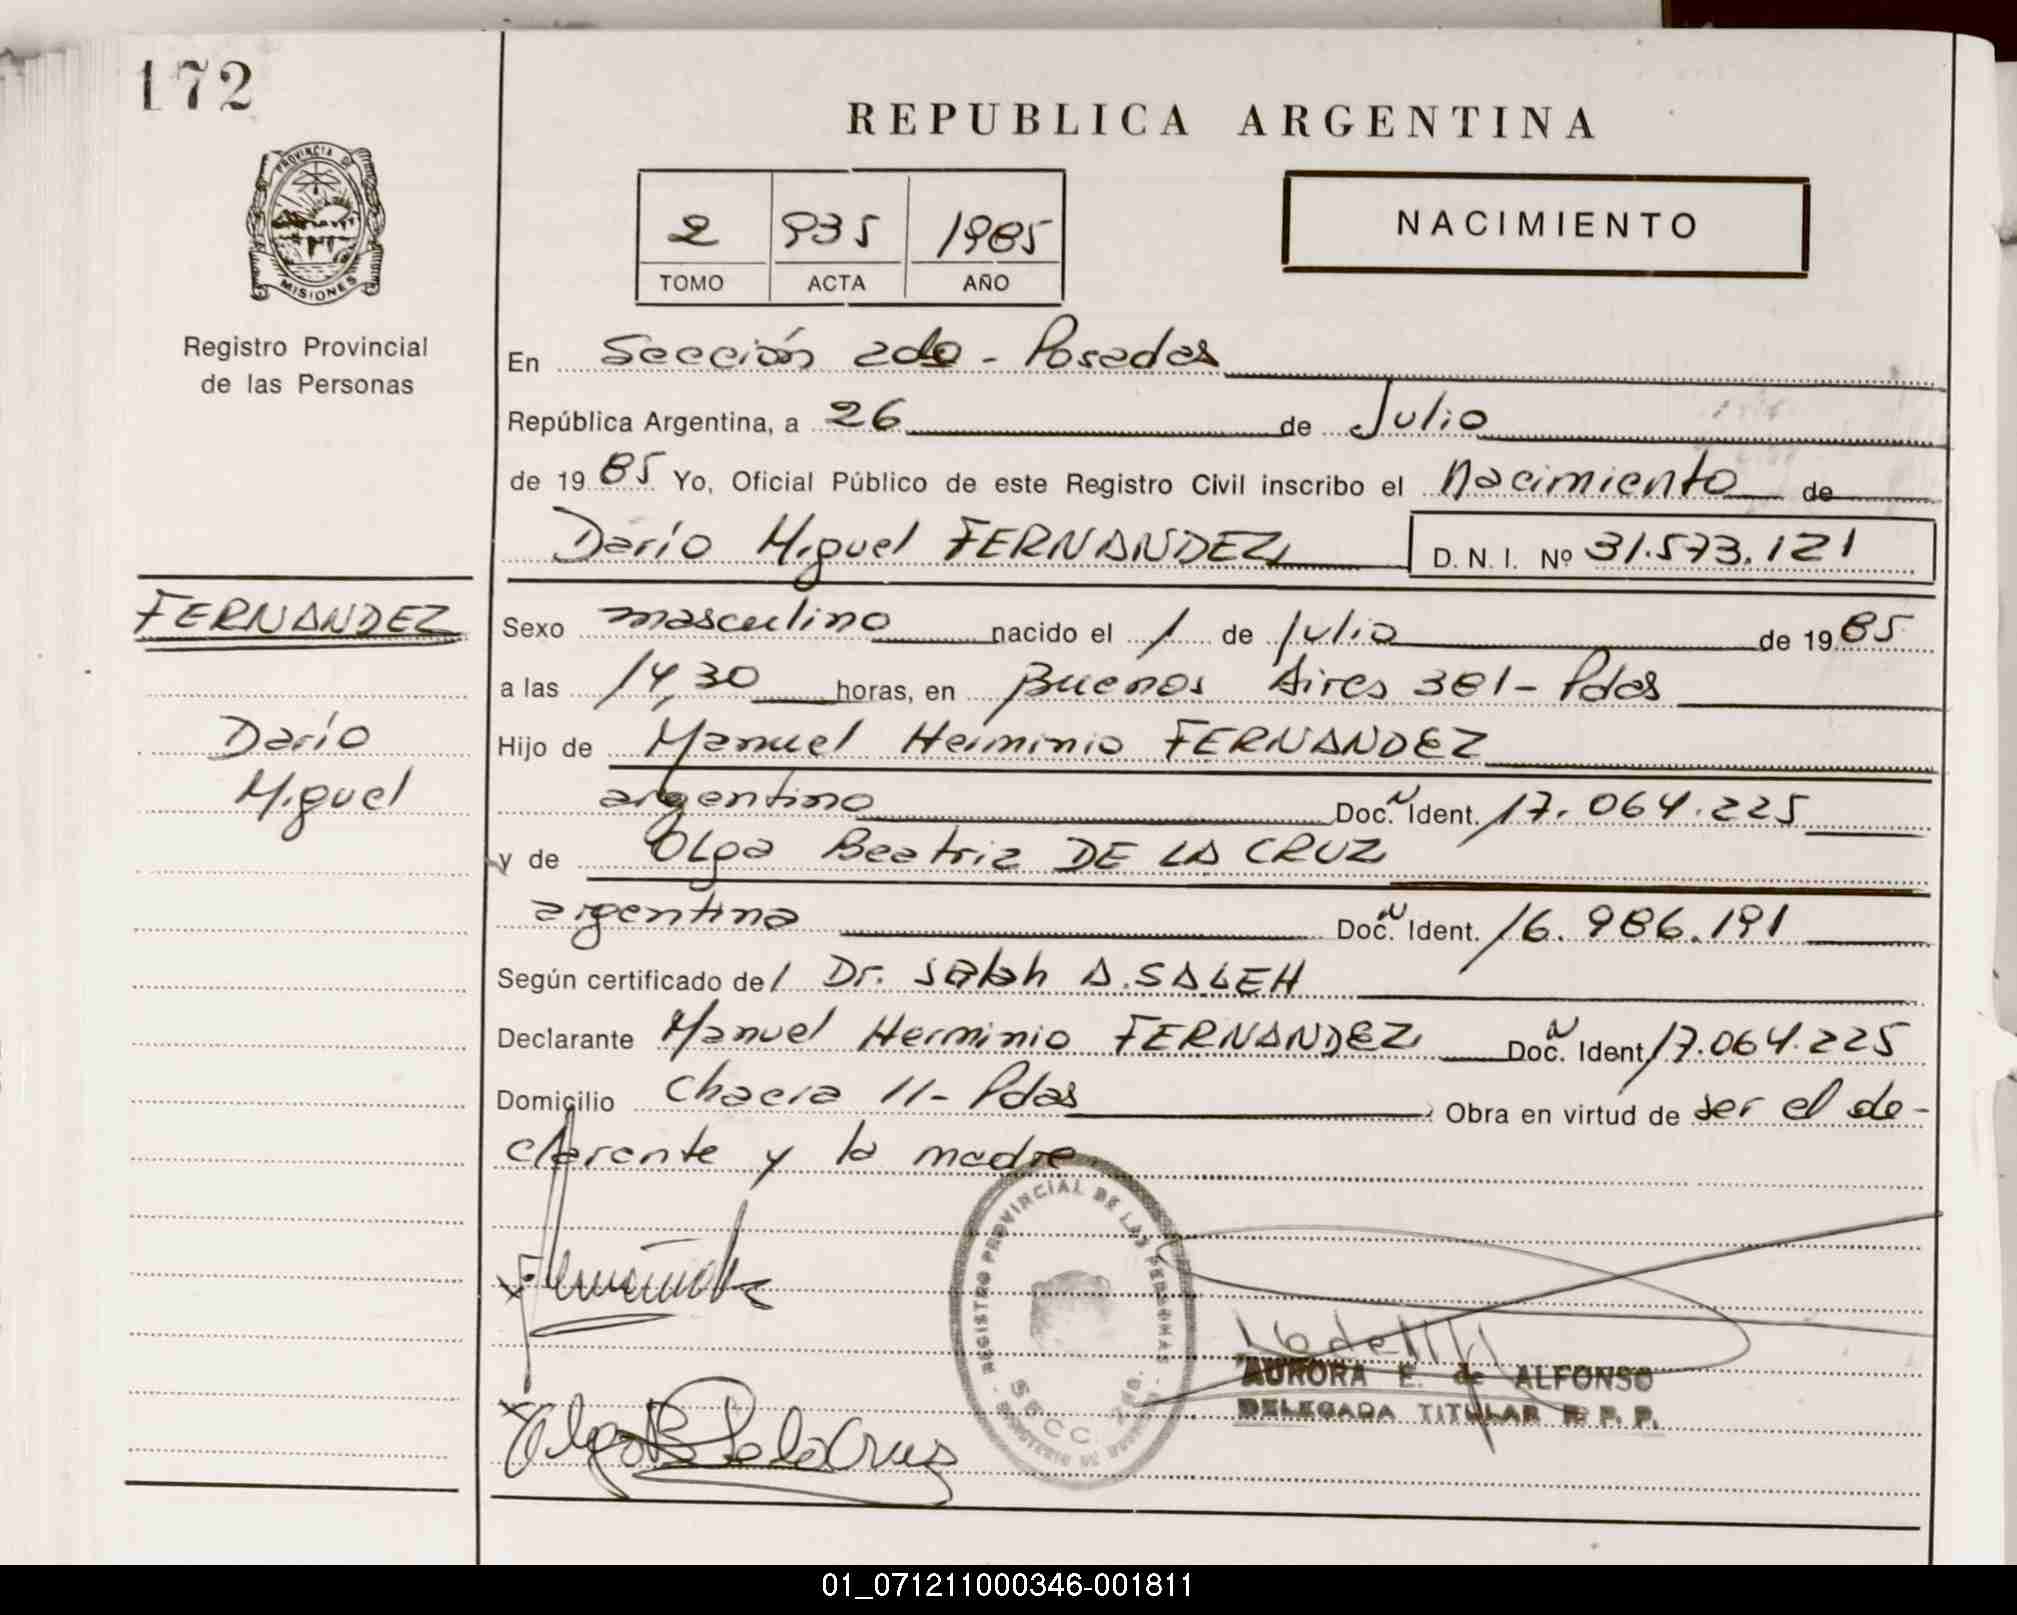 172
REPUBLICA ARGENTINA
PROVINCIA DE
MISIONES
2 935 1985
TOMO ACTA AÑO
NACIMIENTO
Registro Provincial
de las Personas
En Sección 2da - Posadas
República Argentina, a 26 de Julio
de 1985 Yo, Oficial Público de este Registro Civil inscribo el Nacimiento de
Darío Miguel FERNANDEZ D. N. I. Nº 31.573.121
FERNANDEZ
Darío
Miguel
Sexo masculino nacido el 1 de Julio de 1985
a las 14,30 horas, en Buenos Aires 381 - Pdas
Hijo de Manuel Herminio FERNANDEZ
argentino Doc. N Ident. 17.064.225
y de Olga Beatriz DE LA CRUZ
argentina Doc. N Ident. 16.986.191
Según certificado del Dr. Salah A. SALEH
Declarante Manuel Herminio FERNANDEZ Doc. N Ident. 17.064.225
Domicilio Chacra 11 - Pdas. Obra en virtud de ser el de-
clarante y la madre
REGISTRO PROVINCIAL DE LAS PERSONAS
SECC 2da.
Olga B de la Cruz
AURORA E. de ALFONSO
DELEGADA TITULAR R. P. P.
01_071211000346-001811